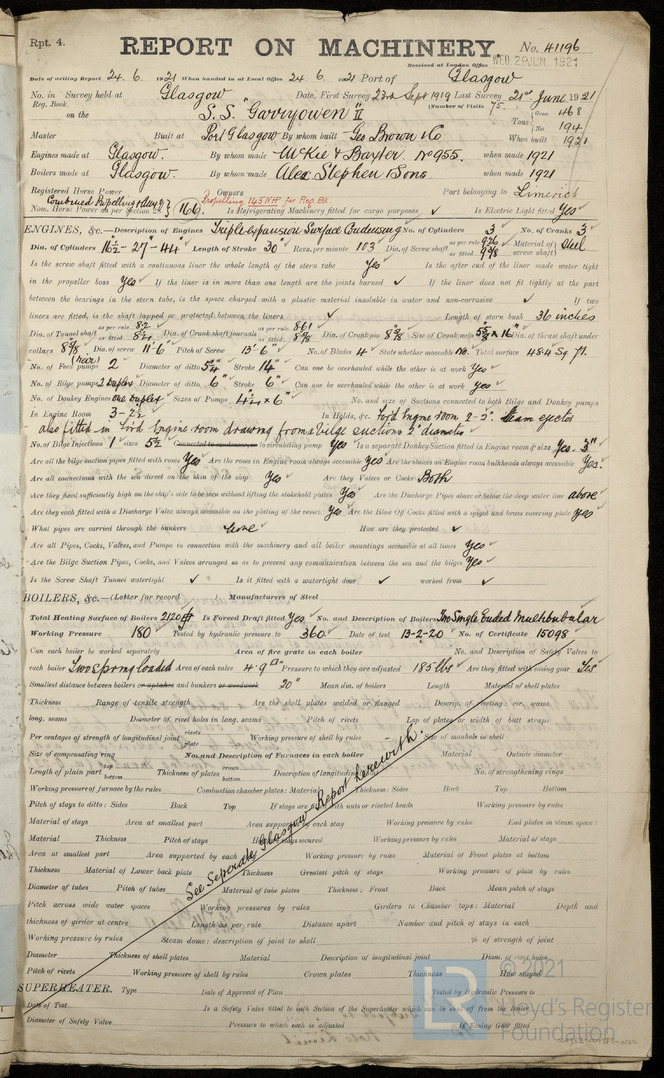 Rpt. 4.
REPORT ON MACHINERY.
No. 41196
Received at London Office WED. 29 JUN. 1921
Date of writing Report 24. 6. 1921 When handed in at Local Office 24. 6. 1921 Port of Glasgow
No. in Survey held at Glasgow Date, First Survey 23rd Sept 1919 Last Survey 21st June 1921
Reg. Book. (Number of Visits 75.
on the S.S. "Garryowen" II
Gross 468
Tons Net 194
Master Built at Port Glasgow By whom built Geo Brown & Co When built 1921
Engines made at Glasgow. By whom made McKie & Baxter No 955. when made 1921
Boilers made at Glasgow. By whom made Alex Stephen & Sons. when made 1921
Registered Horse Power Owners Port belonging to Limerick
Combined Propelling
Propelling 145 NH for Reg. Bk.
Nom. Horse Power as per Section 28 166 Is Refrigerating Machinery fitted for cargo purposes Is Electric Light fitted Yes
ENGINES, &c.—Description of Engines Triple expansion Surface Condensing No. of Cylinders 3 No. of Cranks 3
Dia. of Cylinders 16½ - 27 - 44" Length of Stroke 30" Revs. per minute 103 Dia. of Screw shaft as per rule as fitted 9⅜ Material of screw shaft Steel
Is the screw shaft fitted with a continuous liner the whole length of the stern tube Yes Is the after end of the liner made water tight
in the propeller boss Yes If the liner is in more than one length are the joints burned If the liner does not fit tightly at the part
between the bearings in the stern tube, is the space charged with a plastic material insoluble in water and non-corrosive If two
liners are fitted, is the shaft lapped or protected between the liners Length of stern bush 36 inches
Dia. of Tunnel shaft as per rule 8.2 as fitted Dia. of Crank shaft journals as per rule 8.61 as fitted 8⅞ Dia. of Crank pin 8⅞ Size of Crank webs 5⅝ x 16 Dia. of thrust shaft under
collars 8⅞ Dia. of screw 11'-6" Pitch of Screw 13'-6" No. of Blades 4 State whether moveable No. Total surface 48.4 Sq. ft.
No. of Feed pumps 2 Diameter of ditto Stroke 14" Can one be overhauled while the other is at work Yes
No. of Bilge pumps 2 Duplex Diameter of ditto 6" Stroke 6" Can one be overhauled while the other is at work Yes
No. of Donkey Engines one duplex Sizes of Pumps 4½ x 6" No. and size of Suctions connected to both Bilge and Donkey pumps
In Engine Room 3 - 2½ In Holds, &c. Ford Engine room 2 - 2" Steam ejector
also fitted in Ford Engine room drawing from a bilge suctions 2" diameter
No. of Bilge Injections 1 sizes 5½ Connected to condenser, or to circulating pump Yes Is a separate Donkey Suction fitted in Engine room & size Yes - 3"
Are all the bilge suction pipes fitted with roses Yes Are the roses in Engine room always accessible Yes Are the sluices on Engine room bulkheads always accessible Yes.
Are all connections with the sea direct on the skin of the ship Yes Are they Valves or Cocks Both
Are they fixed sufficiently high on the ship's side to be seen without lifting the stokehold plates Yes Are the Discharge Pipes above or below the deep water line above
Are they each fitted with a Discharge Valve always accessible on the plating of the vessel Yes Are the Blow Off Cocks fitted with a spigot and brass covering plate Yes
What pipes are carried through the bunkers None How are they protected
Are all Pipes, Cocks, Valves, and Pumps in connection with the machinery and all boiler mountings accessible at all times Yes
Are the Bilge Suction Pipes, Cocks, and Valves arranged so as to prevent any communication between the sea and the bilges Yes
Is the Screw Shaft Tunnel watertight Is it fitted with a watertight door worked from
BOILERS, &c.—(Letter for record Manufacturers of Steel
Total Heating Surface of Boilers 2120 Is Forced Draft fitted Yes No. and Description of Boilers One Single Ended Multitubular
Working Pressure 180 Tested by hydraulic pressure to 360 Date of test 13-2-20 No. of Certificate 15098
Can each boiler be worked separately Area of fire grate in each boiler No. and Description of Safety Valves to
each boiler Two spring loaded Area of each valve 4.9 Pressure to which they are adjusted 185 lbs Are they fitted with easing gear Yes
Smallest distance between boilers or uptakes and bunkers or woodwork 20" Mean dia. of boilers Length Material of shell plates
Thickness Range of tensile strength Are the shell plates welded or flanged Descrip. of riveting: cir. seams
long. seams Diameter of rivet holes in long. seams Pitch of rivets Lap of plates or width of butt straps
Per centages of strength of longitudinal joint rivets plate Working pressure of shell by rules Size of manhole in shell
Size of compensating ring No. and Description of Furnaces in each boiler Material Outside diameter
Length of plain part top bottom Thickness of plates crown bottom Description of longitudinal No. of strengthening rings
Working pressure of furnace by the rules Combustion chamber plates: Material Thickness: Sides Back Top Bottom
Pitch of stays to ditto: Sides Back Top If stays are fitted with nuts or riveted heads Working pressure by rules
Material of stays Area at smallest part Area supported by each stay Working pressure by rules End plates in steam space:
Material Thickness Pitch of stays How are stays secured Working pressure by rules Material of stays
Area at smallest part Area supported by each Working pressure by rules Material of Front plates at bottom
Thickness Material of Lower back plate Thickness Greatest pitch of stays Working pressure of plate by rules
Diameter of tubes Pitch of tubes Material of tube plates Thickness: Front Back Mean pitch of stays
Pitch across wide water spaces Working pressures by rules Girders to Chamber tops: Material Depth and
thickness of girder at centre Length as per rule Distance apart Number and pitch of stays in each
Working pressure by rules Steam dome: description of joint to shell % of strength of joint
Diameter Thickness of shell plates Material Description of longitudinal joint Diam. of rivet holes
Pitch of rivets Working pressure of shell by rules Crown plates Thickness How stayed
See Separate Glasgow Report herewith.
SUPERHEATER. Type Date of Approval of Plan Tested by Hydraulic Pressure to
Date of Test Is a Safety Valve fitted to each Section of the Superheater which can be shut off from the Boiler
Diameter of Safety Valve Pressure to which each is adjusted Is Easing Gear fitted
LR
© 2021
Lloyd's Register
Foundation